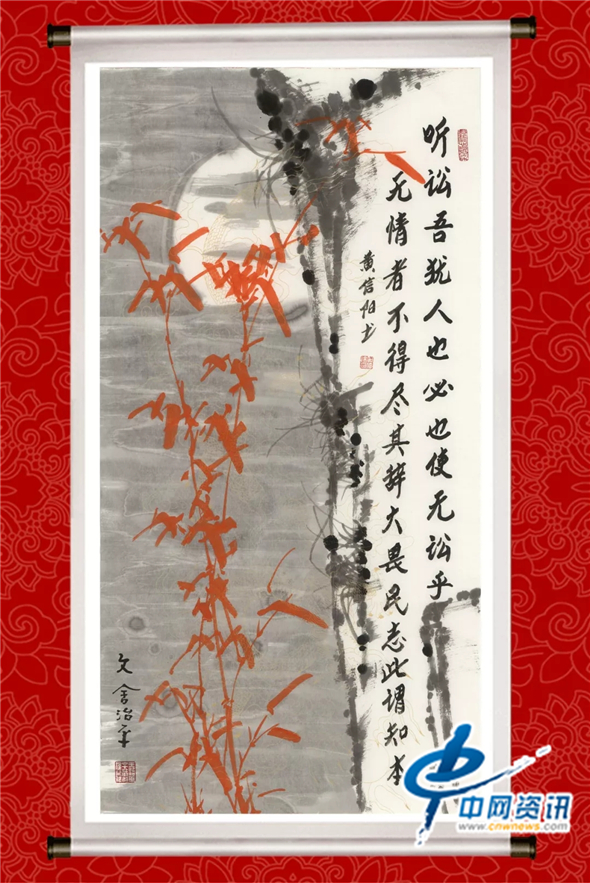 听讼吾犹人也必也使无讼乎
无情者不得尽其辞大畏民志此谓知本
黄信阳书
文舍治平
中网资讯
www.cnwnews.com